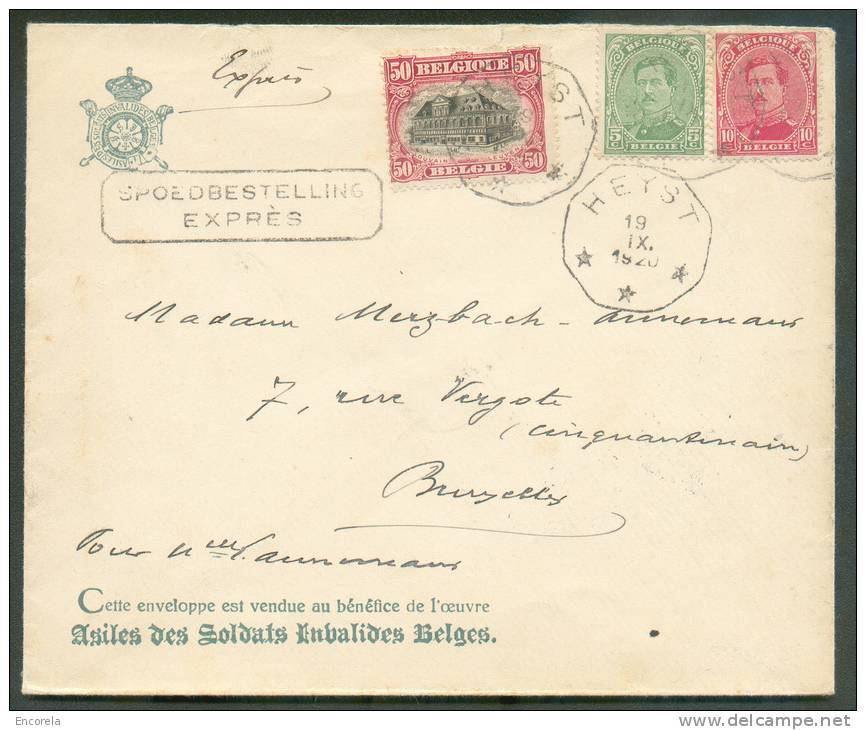 Exprès
SPOEDBESTELLING
EXPRÈS
50 BELGIQUE 50
50 BELGIE 50
BELGIQUE
5c BELGIË 5c
BELGIQUE
10c BELGIË 10c
HEYST
HEYST
19
IX.
1920
Madame Merzbach-Annemans
7, rue Vergote
(Cinquantenaire)
Bruxelles
Pour Mlle Annemans
Cette enveloppe est vendue au bénéfice de l'œuvre
Asiles des Soldats Invalides Belges.
Encorela
www.delcampe.net